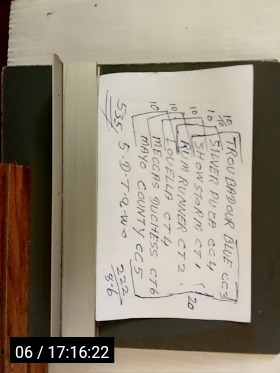 10/10 TROUBADOUR BLUE CC3
10 SILVER NUGA CC4
SHOWSTORM CT1
10 RUM RUNNER CT2
LOVELLA CT4
10 MECCAS DUCHESS CT6
MAYO COUNTY CC5
20
535 5.D.T.Q.W.O
06 / 17:16:22